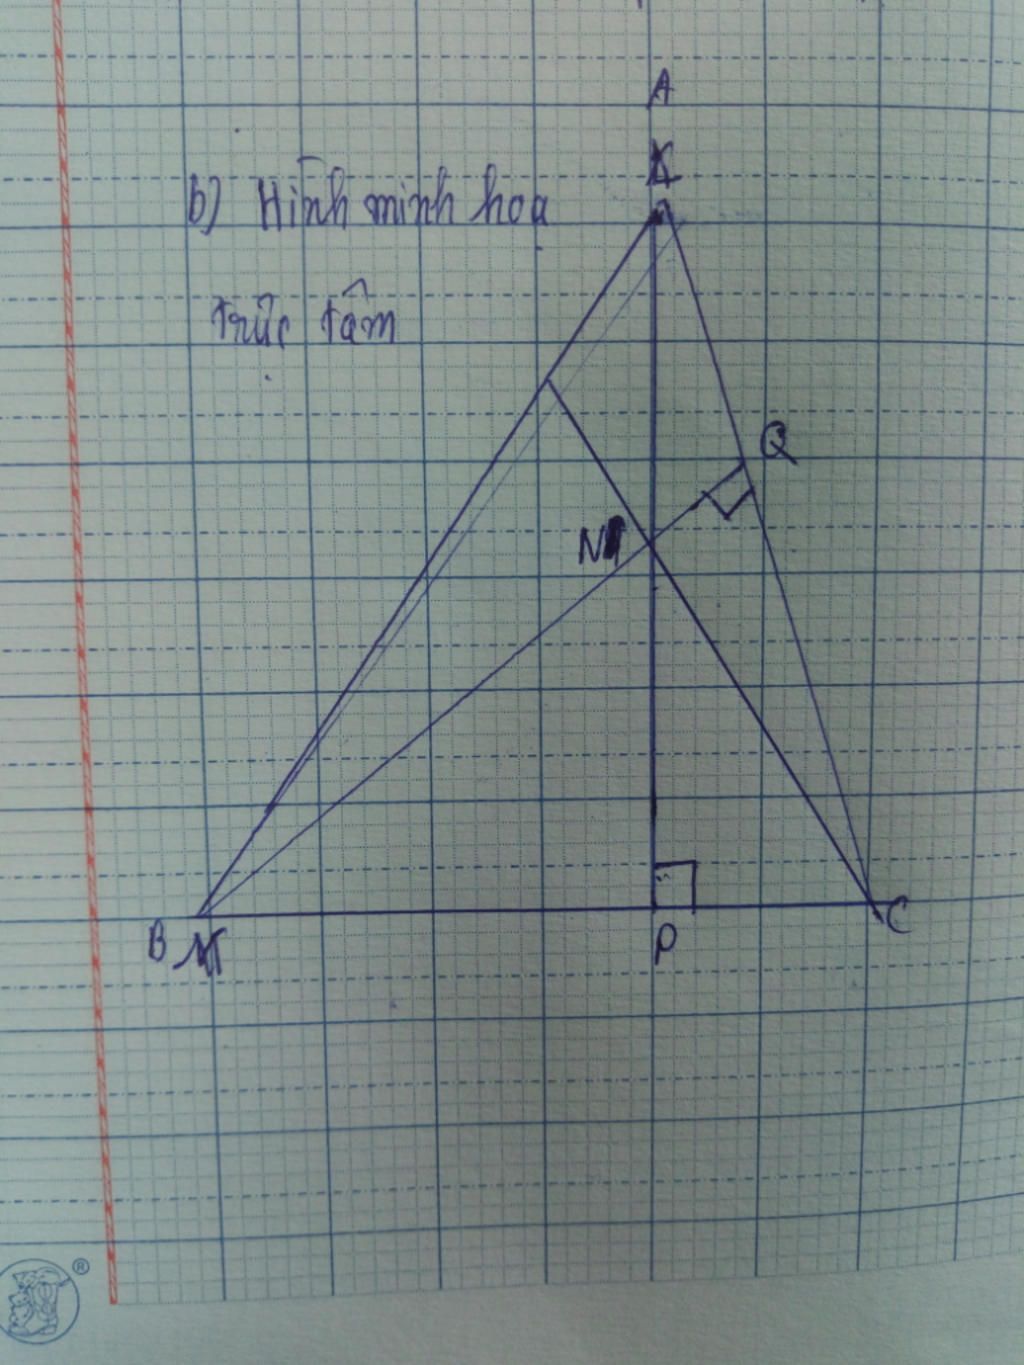 A
b) Hình minh hoạ
trực tâm
Q
N
B
P
C
®